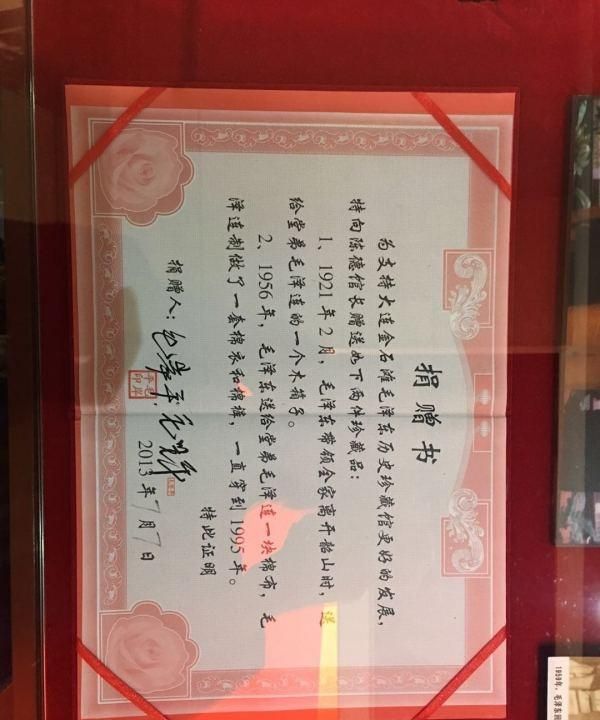 捐赠书
为支持大连金石滩毛泽东历史珍藏馆更好的发展，
特向陈德馆长赠送如下两件珍藏品：
1、1921年2月，毛泽东带领全家离开韶山时，送
给堂弟毛泽连的一个木箱子。
2、1956年，毛泽东送给堂弟毛泽连一块棉布，毛
泽连制做了一套棉衣和棉裤，一直穿到1995年。
特此证明
捐赠人：毛岸平
2013年7月7日
1959年，毛泽东回